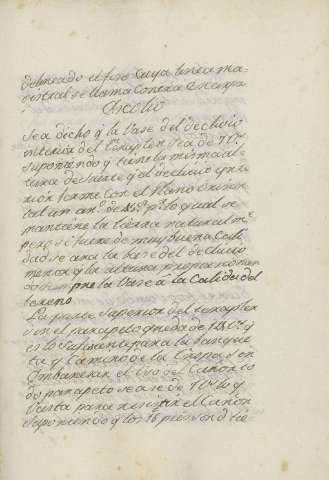 delineado el foso cuya linea ma-
gistral se llama Contra Escarpa
Escolio
Se a dicho q la Vase del declivio
interior del terraplen sea de
suponiendo q tiene la misma al-
tura de y el declivio inte-
rior forme con el Plano Orison
tal un ang.º de 45 g.s p.r lo qual se
mantiene la tierra natural m.te
pero si fuere de muy buena Cali
dad se ara la base del declivio
menor q la altura proporcionan
dose la Vase a la Calidad del
tereno
La parte Superior del terraplen
sin el parapeto queda de
es lo suficiente para la banque
ta y Camino de la tropa sin
Embarazar el Uso del Cañon to
do parapeto se ase de y
Vasta para resistir el Cañon
suponiendo q los 18 pies son de tie